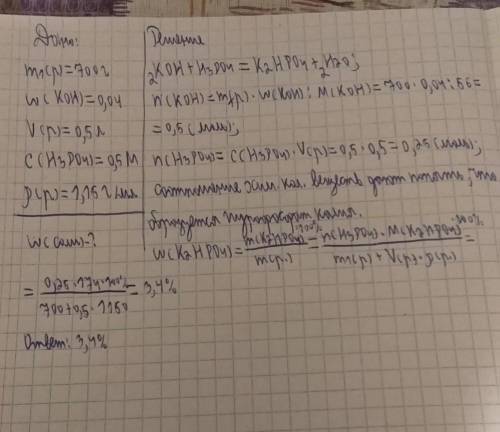 Дано:
m₁(р)=700г
w(KOH)=0,04
V(р)=0,5л
C(H₃PO₄)=0,5М
ρ(р)=1,15г/мл
w(соли)-?
Решение
2KOH+H₃PO₄=K₂HPO₄+2H₂O;
n(KOH)=m(р)·w(KOH):M(KOH)=700·0,04:56=
=0,5(моль);
n(H₃PO₄)=C(H₃PO₄)·V(р)=0,5·0,5=0,25(моль);
соотношение хим. кол. веществ дают понять, что
образуется гидрофосфат калия.
w(K₂HPO₄)=m(K₂HPO₄)·100%/m(р)=n(H₃PO₄)·M(K₂HPO₄)·100%/m₁(р)+V(р)·ρ(р)=
=0,25·174·100%/700+0,5·1150=3,4%
Ответ: 3,4%